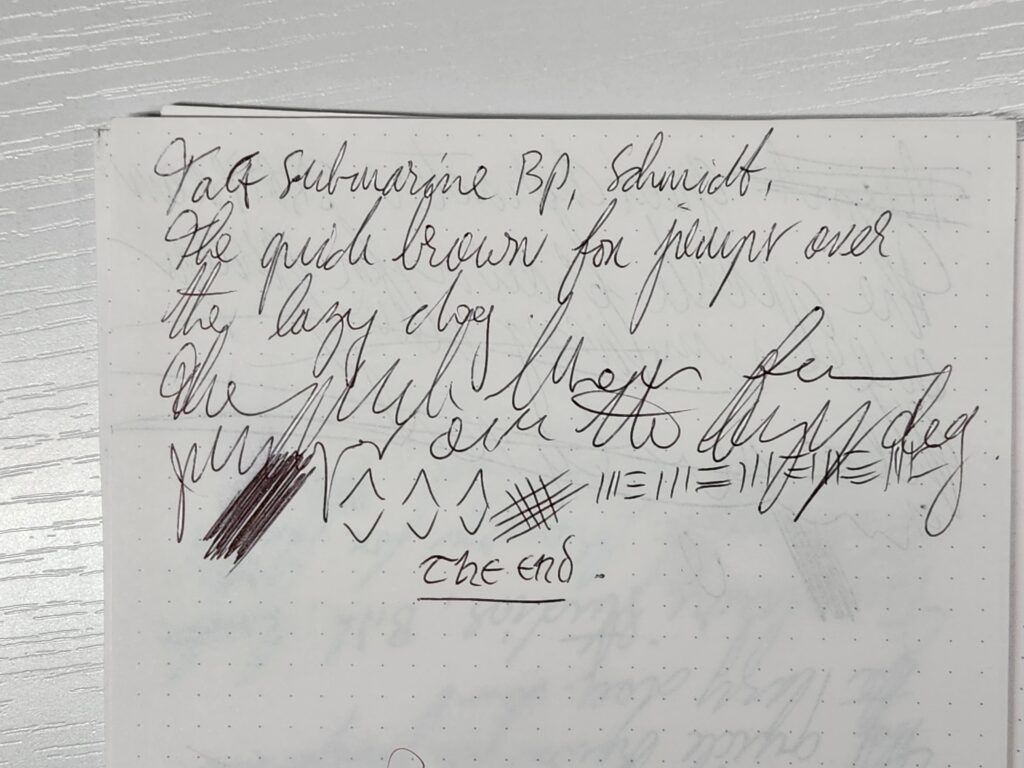 Taff Submarine BP, Schmidt.
The quick brown fox jumps over
the lazy dog
The quick brown fox
jumps over the lazy dog
The end.